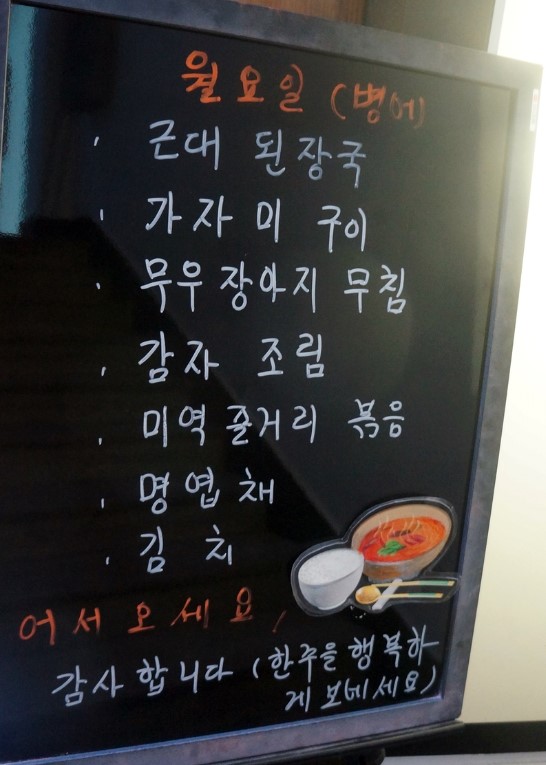 월요일 (병어)
근대 된장국
가자미 구이
무우장아지 무침
감자 조림
미역줄거리 볶음
명엽채
김치
어서오세요,
감사합니다 (한주을 행복하
게 보네세요)